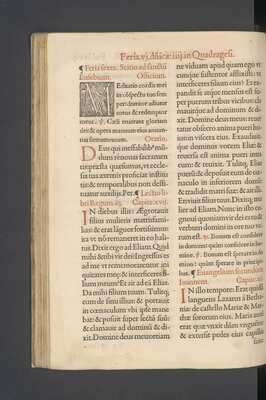 Feria.vj.dñicæ.iiij.in Quadragesi.
¶ Feria sexta. Statio ad sanctũ
Eusebium. Officium.
Editatio cordis mei
in cõspectu tuo sem
per: domine adiutor
meus & redemptor
meus. ps. Cæli enarrant gloriam
dei: & opera manuum eius annun
Oratio.
Deus qui ineffabilibꝰ mũ
dum renouas sacramen
tis: præsta quæsumus, vt eccle-
sia tua æternis proficiat institu
tis: & temporalibus non desti-
tuatur auxilijs. Per. ¶ Lectio li-
bri Regum.iij. Capitte.xvij.
In diebus illis: Aegrotauit
filius mulieris matrisfami-
lias: & erat lãguor fortissimus
ita vt nõ remaneret in eo hali-
tus. Dixit ergo ad Eliam. Quid
mihi & tibi vir dei? Ingressus es
ad me vt rememorarentur ini
quitates meę: & interficeres fi-
lium meum? Et ait ad eã Elias.
Da mihi filium tuum. Tulitq;
eum de sinu illius: & portauit
in cœnaculum vbi ipse mane
bat: & posuit super lectũ suũ:
& clamauit ad dominũ & di-
xit. Domine deus meus: etiam
ne viduam apud quam ego vt
cunque sustentor afflixisti: vt
interficeres filium eius? Et ex-
pandit se atque mensus est su-
per puerum tribus vicibus: cla
mauitque ad dominum & di-
xit. Domine deus meus: reuer
tatur obsecro anima pueri hu
ius in viscera eius. Exaudiuit
dominus vocem Eliæ: & re-
uersa est anima pueri intra
eum: & reuixit. Tulitq; Elias
puerũ & deposuit eum de cœ-
naculo in inferiorem domum
& tradidit matri suæ: & ait illi.
En viuit filius tuus. Dixitq; mu
lier ad Eliam. Nunc in isto co-
gnoui quoniam vir dei es tu: &
verbum domini in ore tuo ve-
rum est. Bonum est confidere
in domino: quàm confidere in ho-
mine. Bonum est sperare in do-
mino: quàm sperare in princi-
pibus. ¶ Euangelium secundum
Ioannem.
In illo tempore: Erat quidã
languens Lazarus à Betha-
nia: de castello Mariæ & Mar-
thæ sororum eius. Maria autẽ
erat quæ vnxit dñm vnguẽto:
& extersit pedes eius capillis